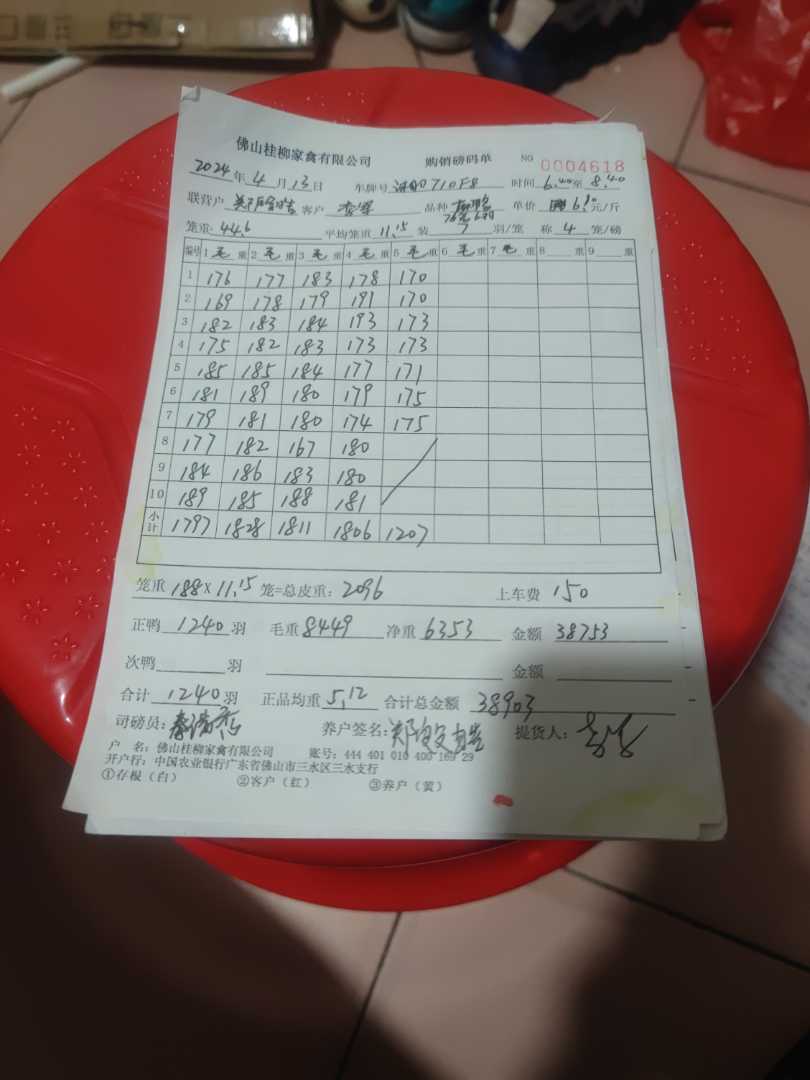 佛山桂柳家禽有限公司 购销磅码单 NO 0004618
2024年4月13日 车牌号 710F8 时间6.40至8.40
联营户 客户 品种 单价 6.10元/斤
笼重:44.6 平均笼重11.15装7羽/笼 称4笼/磅
编号 1毛重 2毛重 3毛重 4毛重 5毛重 6毛重 7毛重 8重 9重
1 176 177 183 178 170
2 169 178 179 191 170
3 182 183 184 193 173
4 175 182 183 173 173
5 185 185 184 177 171
6 181 189 180 179 175
7 179 181 180 174 175
8 177 182 167 180
9 184 186 183 180
10 189 185 188 181
小计 1797 1828 1811 1806 1207
笼重188X11.15笼=总皮重:2096 上车费150
正鸭1240羽 毛重8449 净重6353 金额38753
次鸭羽 金额
合计1240羽 正品均重5.12 合计总金额38903
司磅员: 养户签名: 提货人:
户 名:佛山桂柳家禽有限公司 账号:444 401 010 400 169 29
开户行:中国农业银行广东省佛山市三水区三水支行
①存根(白) ②客户(红) ③养户(黄)